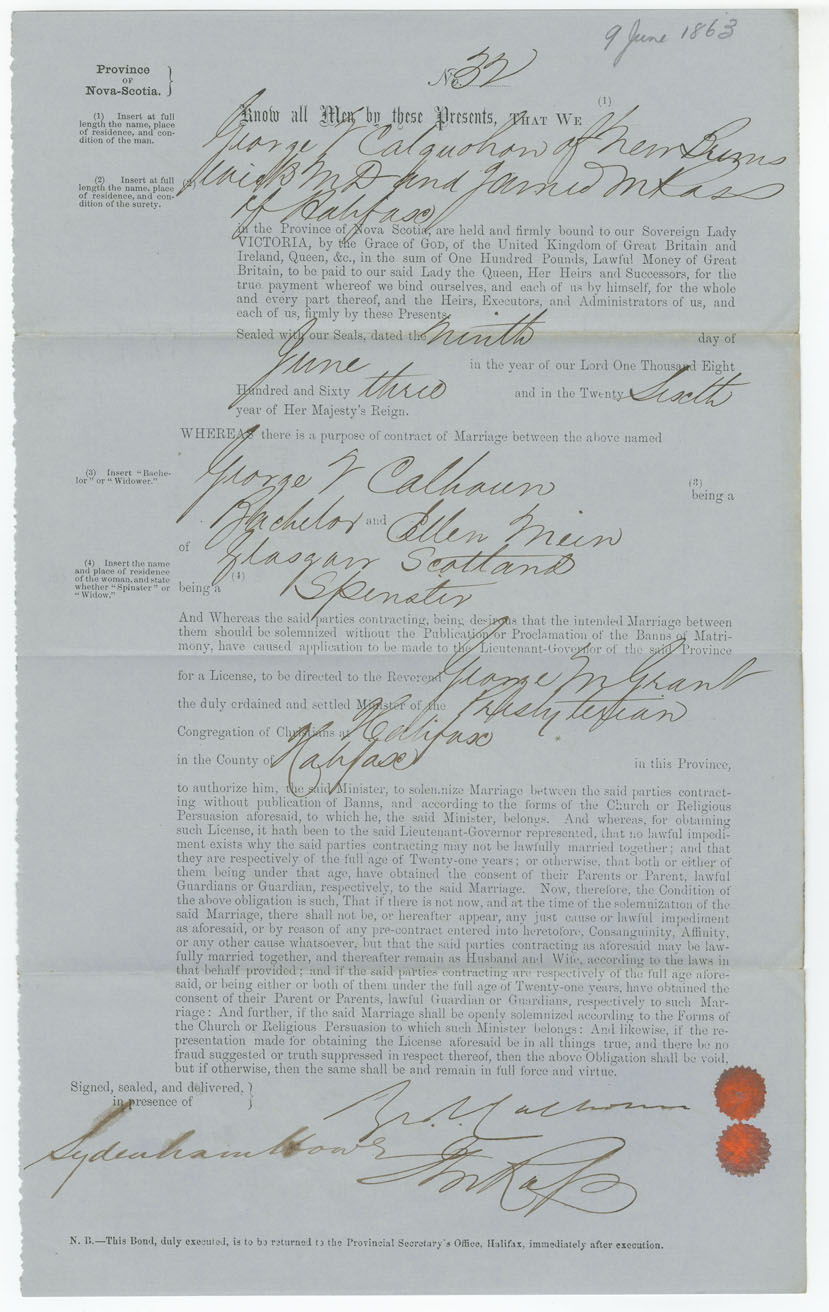 9 June 1863
No. 32
Province
OF
Nova-Scotia.
(1) Insert at full
length the name, place
of residence, and con-
dition of the man.
(2) Insert at full
length the name, place
of residence, and con-
dition of the surety.
(1)
Know all Men by these Presents, THAT WE
George V Calquohon of New Bruns
wick M D and James McKass
of Halifax
in the Province of Nova Scotia, are held and firmly bound to our Sovereign Lady
VICTORIA, by the Grace of GOD, of the United Kingdom of Great Britain and
Ireland, Queen, &c., in the sum of One Hundred Pounds, Lawful Money of Great
Britain, to be paid to our said Lady the Queen, Her Heirs and Successors, for the
true payment whereof we bind ourselves, and each of us by himself, for the whole
and every part thereof, and the Heirs, Executors, and Administrators of us, and
each of us, firmly by these Presents.
Sealed with our Seals, dated the ninth day of
June in the year of our Lord One Thousand Eight
Hundred and Sixty three and in the Twenty Sixth
year of Her Majesty's Reign.
WHEREAS there is a purpose of contract of Marriage between the above named
(3) Insert "Bache-
lor" or "Widower."
George V Calhoun (3)
being a
Bachelor and Ellen Mein
of Glasgow Scotland
(4) Insert the name
and place of residence
of the woman, and state
whether "Spinster" or
"Widow."
(4)
being a Spinster
And Whereas the said parties contracting, being desirous that the intended Marriage between
them should be solemnized without the Publication or Proclamation of the Banns of Matri-
mony, have caused application to be made to the Lieutenant-Governor of the said Province
for a License, to be directed to the Reverend George M Grant
the duly ordained and settled Minister of the Presbyterian
Congregation of Christians at Halifax
in the County of Halifax in this Province,
to authorize him, the said Minister, to solemnize Marriage between the said parties contract-
ing without publication of Banns, and according to the forms of the Church or Religious
Persuasion aforesaid, to which he, the said Minister, belongs. And whereas, for obtaining
such License, it hath been to the said Lieutenant-Governor represented, that no lawful impedi-
ment exists why the said parties contracting may not be lawfully married together; and that
they are respectively of the full age of Twenty-one years; or otherwise, that both or either of
them being under that age, have obtained the consent of their Parents or Parent, lawful
Guardians or Guardian, respectively, to the said Marriage. Now, therefore, the Condition of
the above obligation is such, That if there is not now, and at the time of the solemnization of the
said Marriage, there shall not be, or hereafter appear, any just cause or lawful impediment
as aforesaid, or by reason of any pre-contract entered into heretofore, Consanguinity, Affinity,
or any other cause whatsoever, but that the said parties contracting as aforesaid may be law-
fully married together, and thereafter remain as Husband and Wife, according to the laws in
that behalf provided; and if the said parties contracting are respectively of the full age afore-
said, or being either or both of them under the full age of Twenty-one years, have obtained the
consent of their Parent or Parents, lawful Guardian or Guardians, respectively to such Mar-
riage: And further, if the said Marriage shall be openly solemnized according to the Forms of
the Church or Religious Persuasion to which such Minister belongs: And likewise, if the re-
presentation made for obtaining the License aforesaid be in all things true, and there be no
fraud suggested or truth suppressed in respect thereof, then the above Obligation shall be void,
but if otherwise, then the same shall be and remain in full force and virtue.
Signed, sealed, and delivered,
in presence of
Calhoun
Sydenham Howe
N. B.—This Bond, duly executed, is to be returned to the Provincial Secretary's Office, Halifax, immediately after execution.